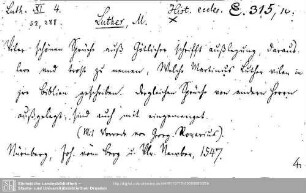 Luth. XI 4.
Luther, M.
Hist. eccles. E. 315, 10.
Viler schönen Sprüche auß Göttlicher schrifft außlegung, daraus
lere und trost zu nemen, Welche Martinus Luther vilen in
ire Biblien geschriben. Desgleichen Sprüche von andern Herren
außgelegt, sind auch mit eingemengt.
(Mit Vorrede von Georg Rorarius).
Nürnberg, Joh. vom Berg u. Ulr. Newber, 1547.
4.